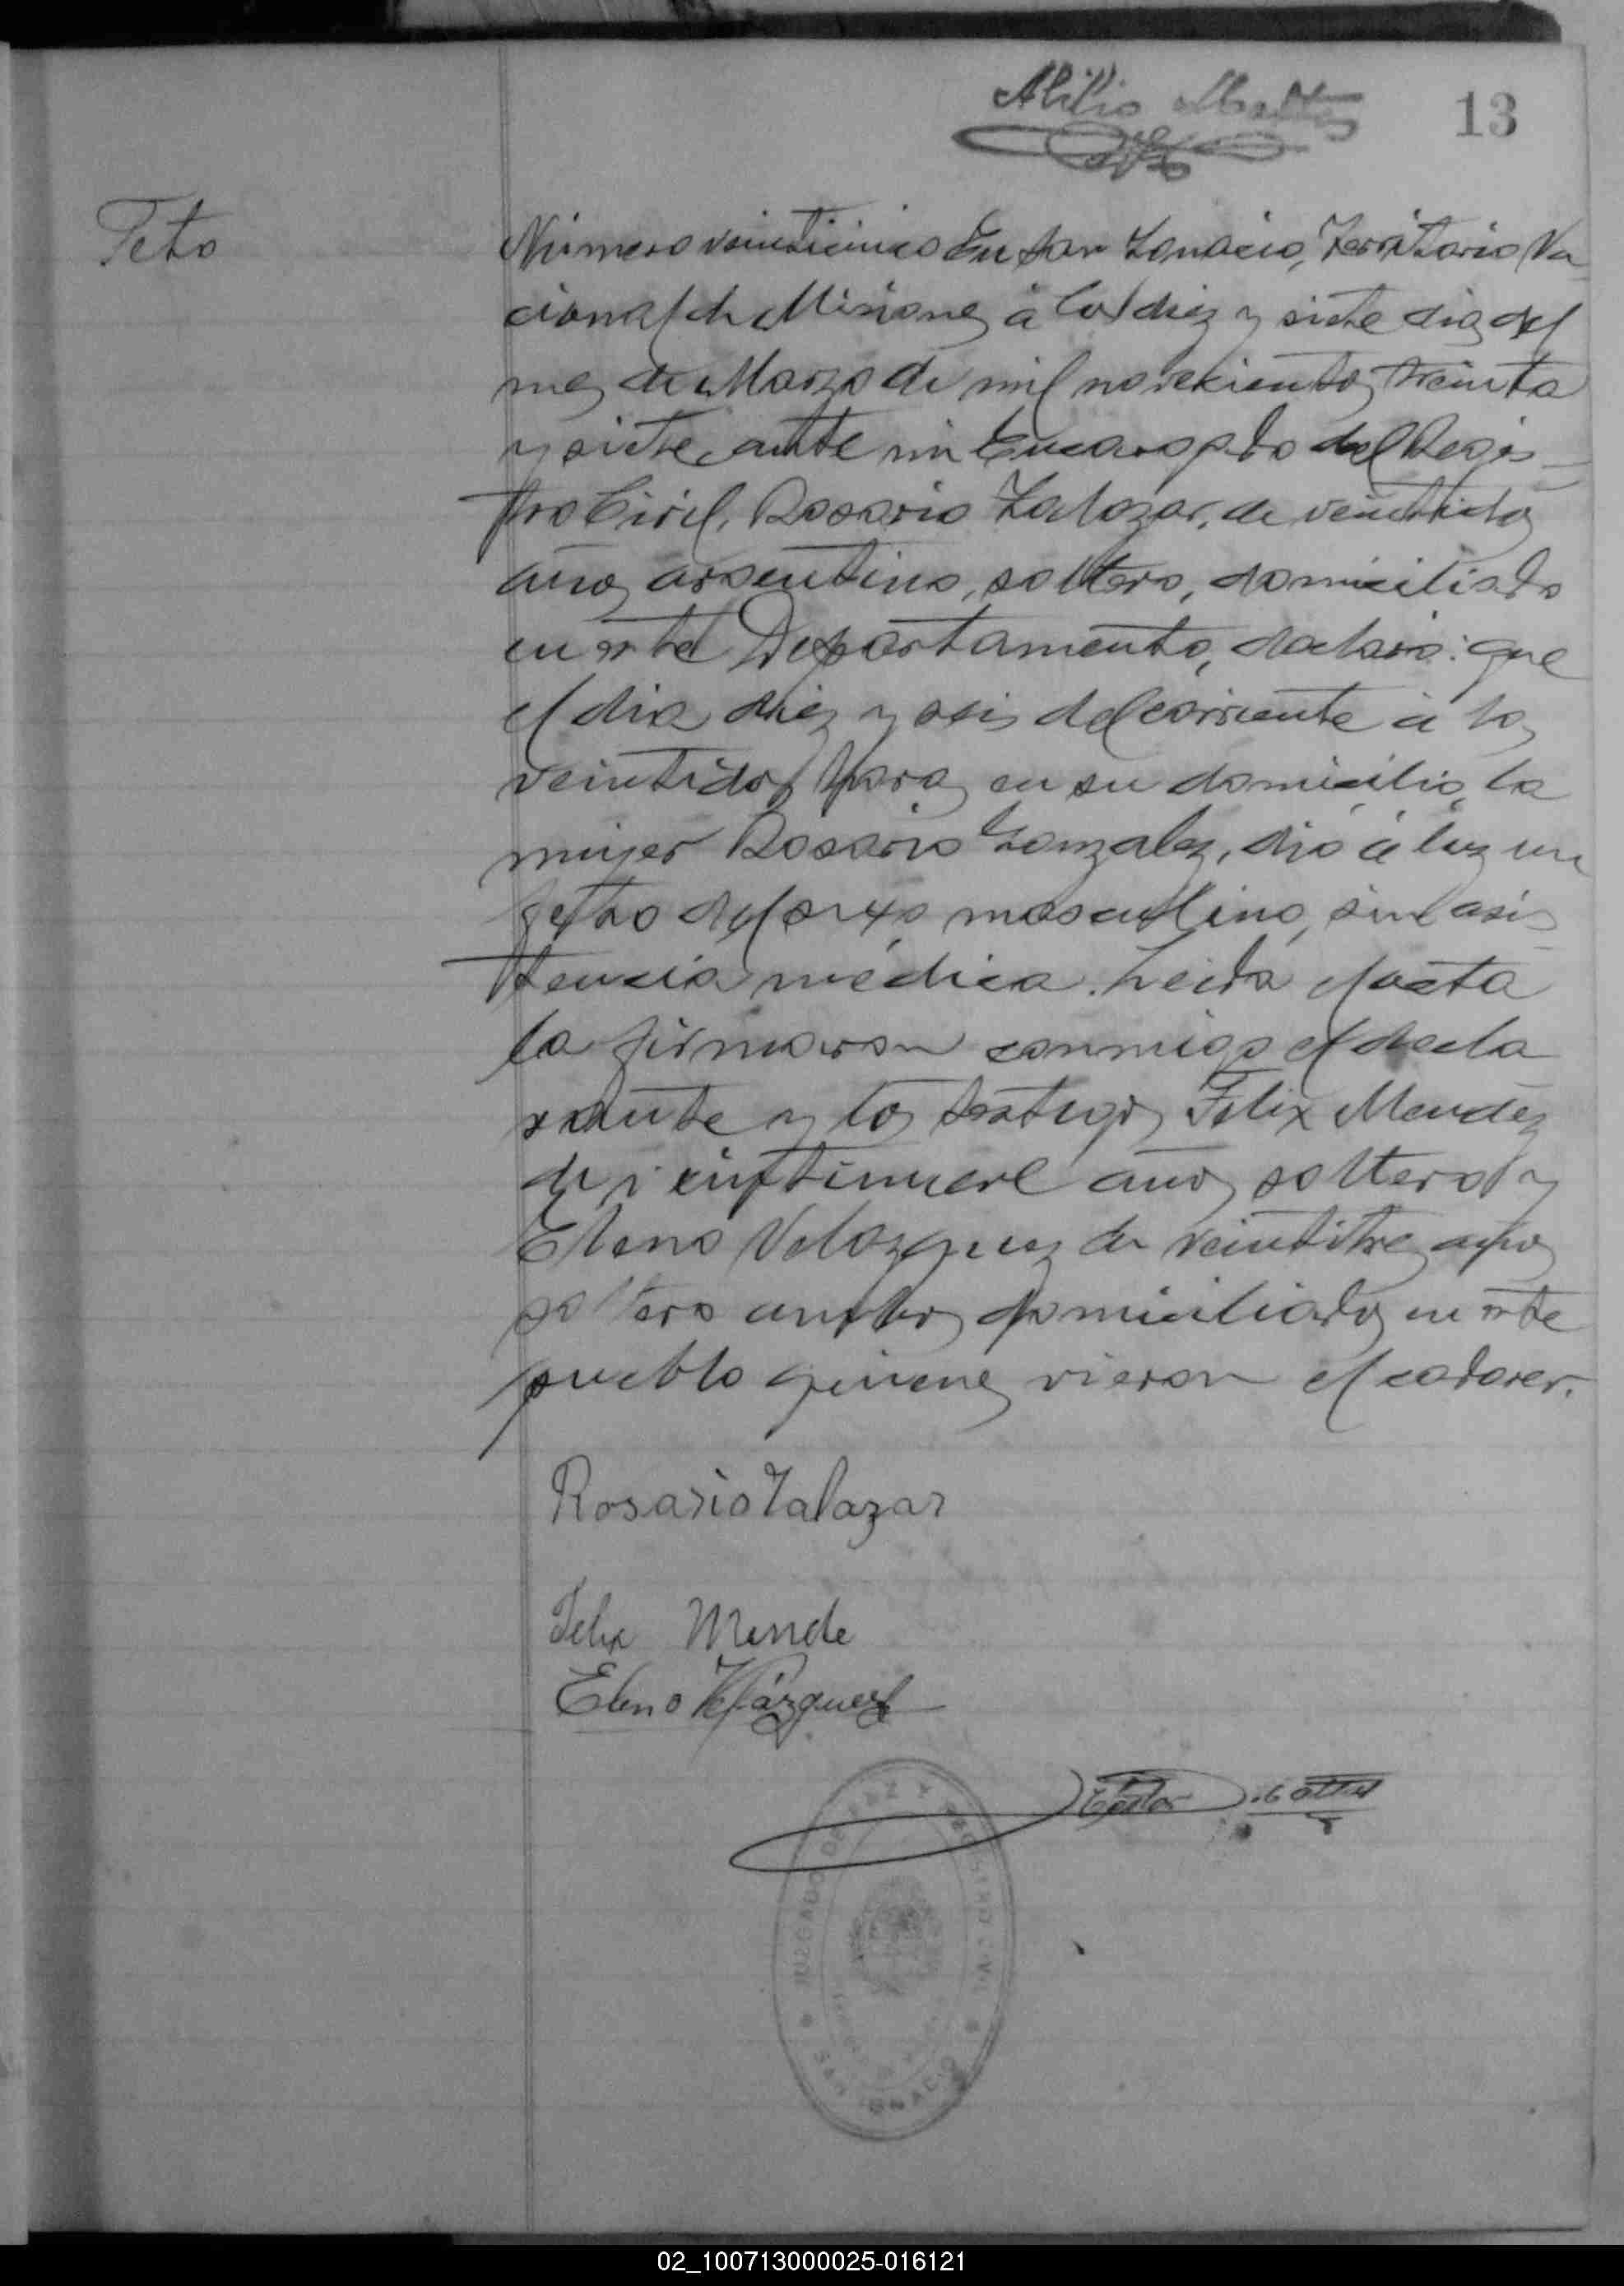 13
Feto
Número veinticinco En San Ignacio, Territorio Na-
cional de Misiones á los diez y siete dias del
mes de Marzo de mil novecientos treinta
y siete, ante mi Encargado del Regis-
tro Civil, Rosario Zalazar, de veintidos
años, argentino, soltero, domiciliado
en este Departamento, declaró: que
el dia diez y seis del corriente á las
veintidos horas en su domicilio, la
mujer Rosario Gonzalez, dió á luz un
feto del sexo masculino, sin asis-
tencia médica. Leida el acta
la firmaron conmigo el decla
rante y los testigos Felix Mendez
de veintinueve años, soltero y
Eleno Velazquez de veintitres años
soltero ambos domiciliados en este
pueblo quienes vieron el cadaver.
Rosario Zalazar
Felix Mende
Eleno Velázquez
JUZGADO DE PAZ Y REGISTRO CIVIL
SAN IGNACIO
02_100713000025-016121